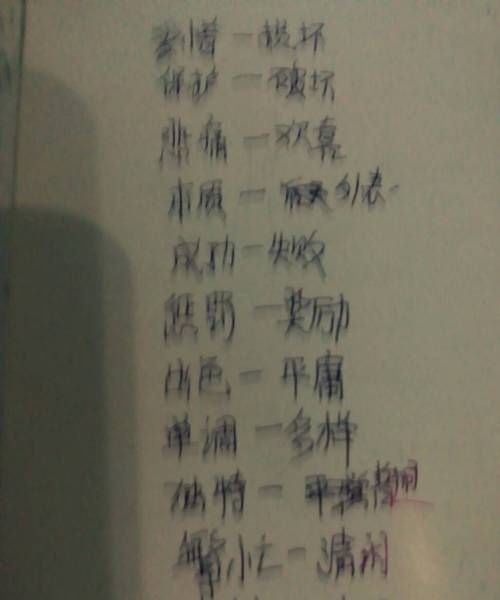 惜—损坏
保护—破坏
悲痛—欢喜
本质—外表
成功—失败
惩罚—奖励
出色—平庸
单调—多样
独特—
繁忙—清闲